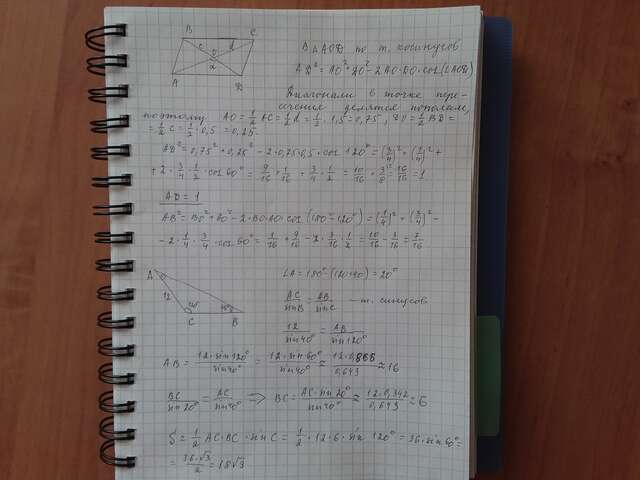 B C
c d
O
α
A D
В △AOD по т. косинусов
AD² = AO² + DO² - 2AO·DO·cos(∠AOD)
Диагонали в точке пере-
сечения делятся пополам,
поэтому AO = 1/2 AC = 1/2 d = 1/2 · 1,5 = 0,75, DO = 1/2 BD =
= 1/2 c = 1/2 · 0,5 = 0,25.
AD² = 0,75² + 0,25² - 2·0,75·0,5·cos 120° = (3/4)² + (1/4)² +
+ 2·3/4·1/2·cos 60° = 9/16 + 1/16 + 3/4·1/2 = 10/16 + 3/8 = 16/16 = 1
AD = 1
AB² = BO² + AO² - 2·BO·AO·cos(180°-120°) = (1/4)² + (3/4)² -
- 2·1/4·3/4·cos 60° = 1/16 + 9/16 - 2·3/16·1/2 = 10/16 - 3/16 = 7/16
A
12
C B
∠A = 180° - (120+40) = 20°
AC/sin B = AB/sin C - т. синусов
12/sin 40° = AB/sin 120°
AB = 12·sin 120°/sin 40° = 12·sin 60°/sin 40° ≈ 12·0,866/0,643 ≈ 16
BC/sin 20° = AC/sin 40° => BC = AC·sin 20°/sin 40° ≈ 12·0,342/0,643 ≈ 6
S = 1/2 AC·BC·sin C = 1/2·12·6·sin 120° = 36·sin 60° =
= 36·√3/2 = 18√3